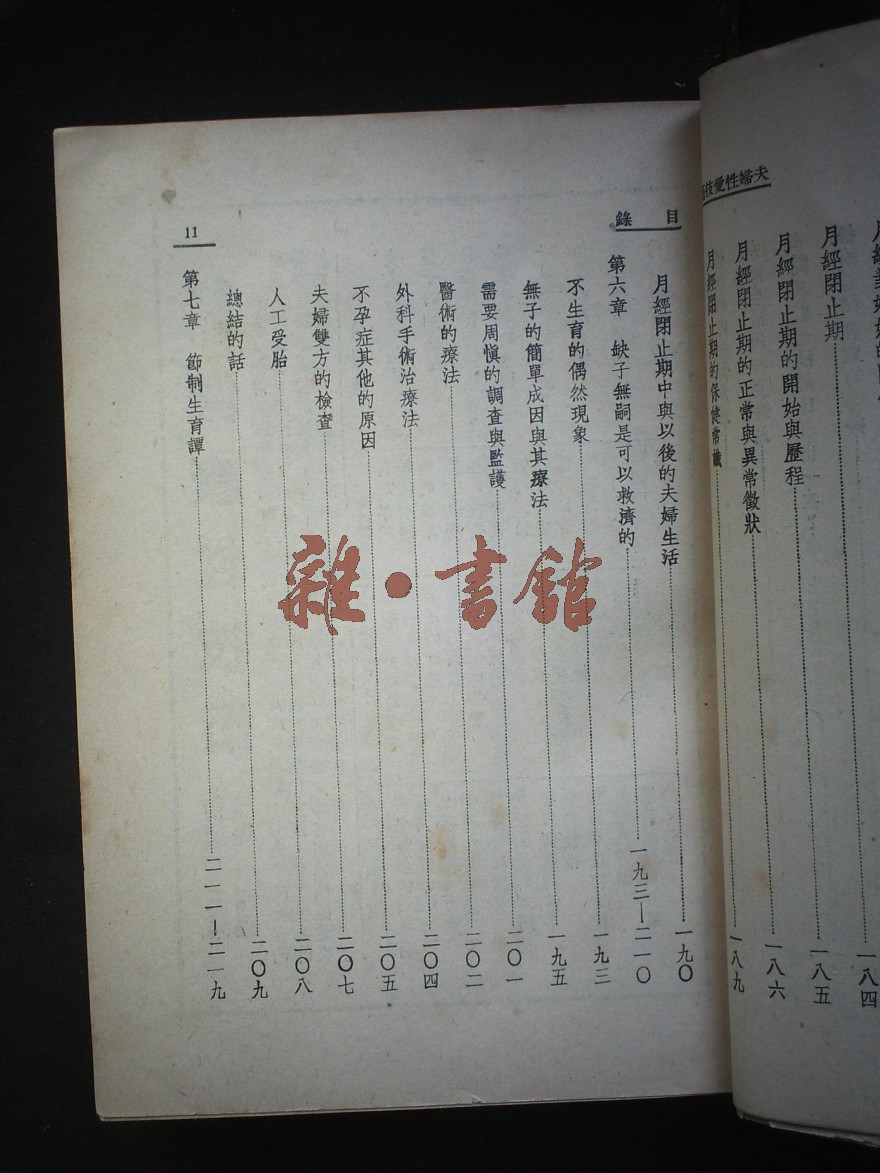 夫婦性愛技
月經閉止期
一八四
一八五
月經閉止期的開始與歷程
一八六
月經閉止期的正常與異常徵狀
一八九
月經閉止期的保健常識
目錄
月經閉止期中與以後的夫婦生活
一九〇
第六章 缺子無嗣是可以救濟的
一九三—二一〇
不生育的偶然現象
一九三
無子的簡單成因與其療法
一九五
需要周愼的調查與監護
二〇一
醫術的療法
二〇二
外科手術治療法
二〇四
不孕症其他的原因
二〇五
夫婦雙方的檢查
二〇七
人工受胎
二〇八
總結的話
二〇九
第七章 節制生育譚
二一一—二一九
11
雜·書館